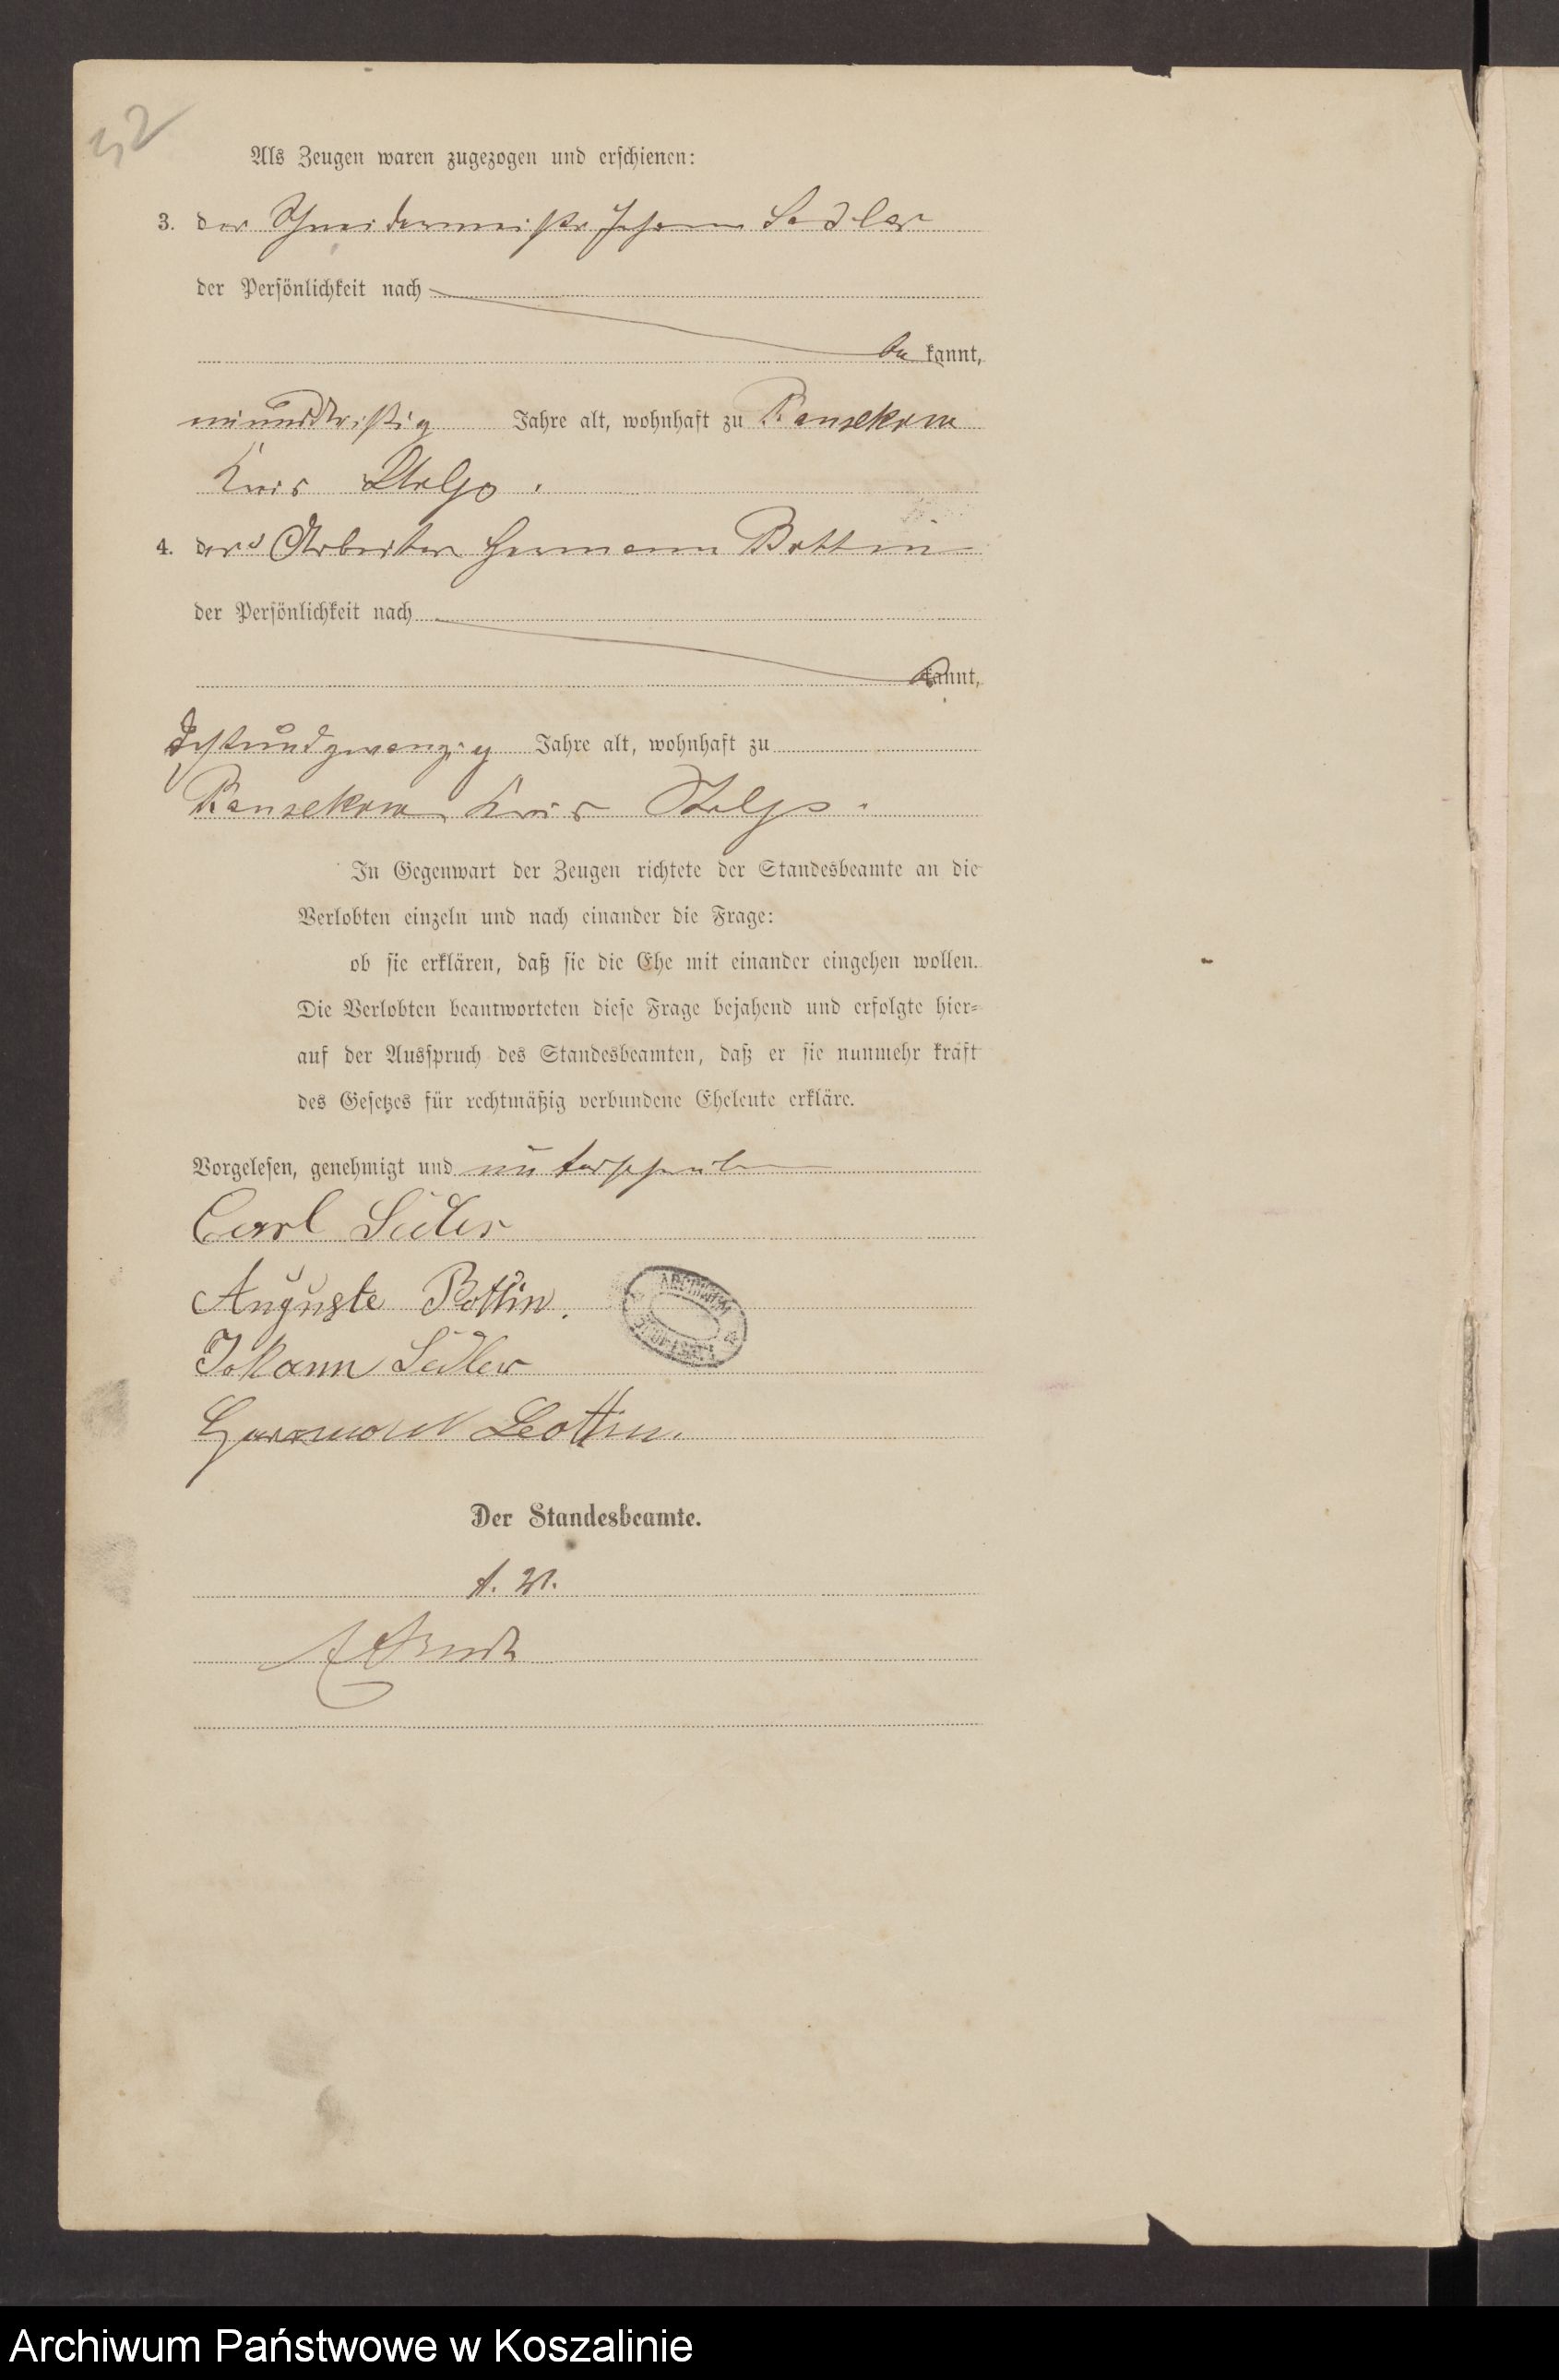 32
Als Zeugen waren zugezogen und erschienen:
3. der Schneidermeister Johann Sedler
der Persönlichkeit nach
be kannt,
neununddreißig Jahre alt, wohnhaft zu Ransekow
Kreis Stolp.
4. der Arbeiter Hermann Bottin
der Persönlichkeit nach
kannt,
sechsundzwanzig Jahre alt, wohnhaft zu
Ransekow, Kreis Stolp.
In Gegenwart der Zeugen richtete der Standesbeamte an die
Verlobten einzeln und nach einander die Frage:
ob sie erklären, daß sie die Ehe mit einander eingehen wollen.
Die Verlobten beantworteten diese Frage bejahend und erfolgte hier-
auf der Ausspruch des Standesbeamten, daß er sie nunmehr kraft
des Gesetzes für rechtmäßig verbundene Eheleute erkläre.
Vorgelesen, genehmigt und unterschrieben
Carl
Auguste Bottin.
Johann Sedler
Hermann Bottin.
Der Standesbeamte.
Archiwum Państwowe w Koszalinie